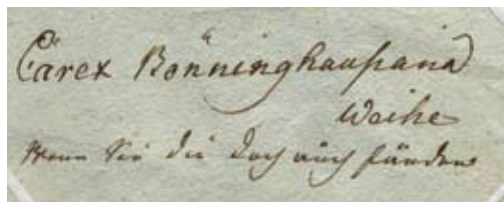 Carex Bönninghausiana
Weihe
Wenn Sie die doch auch fänden